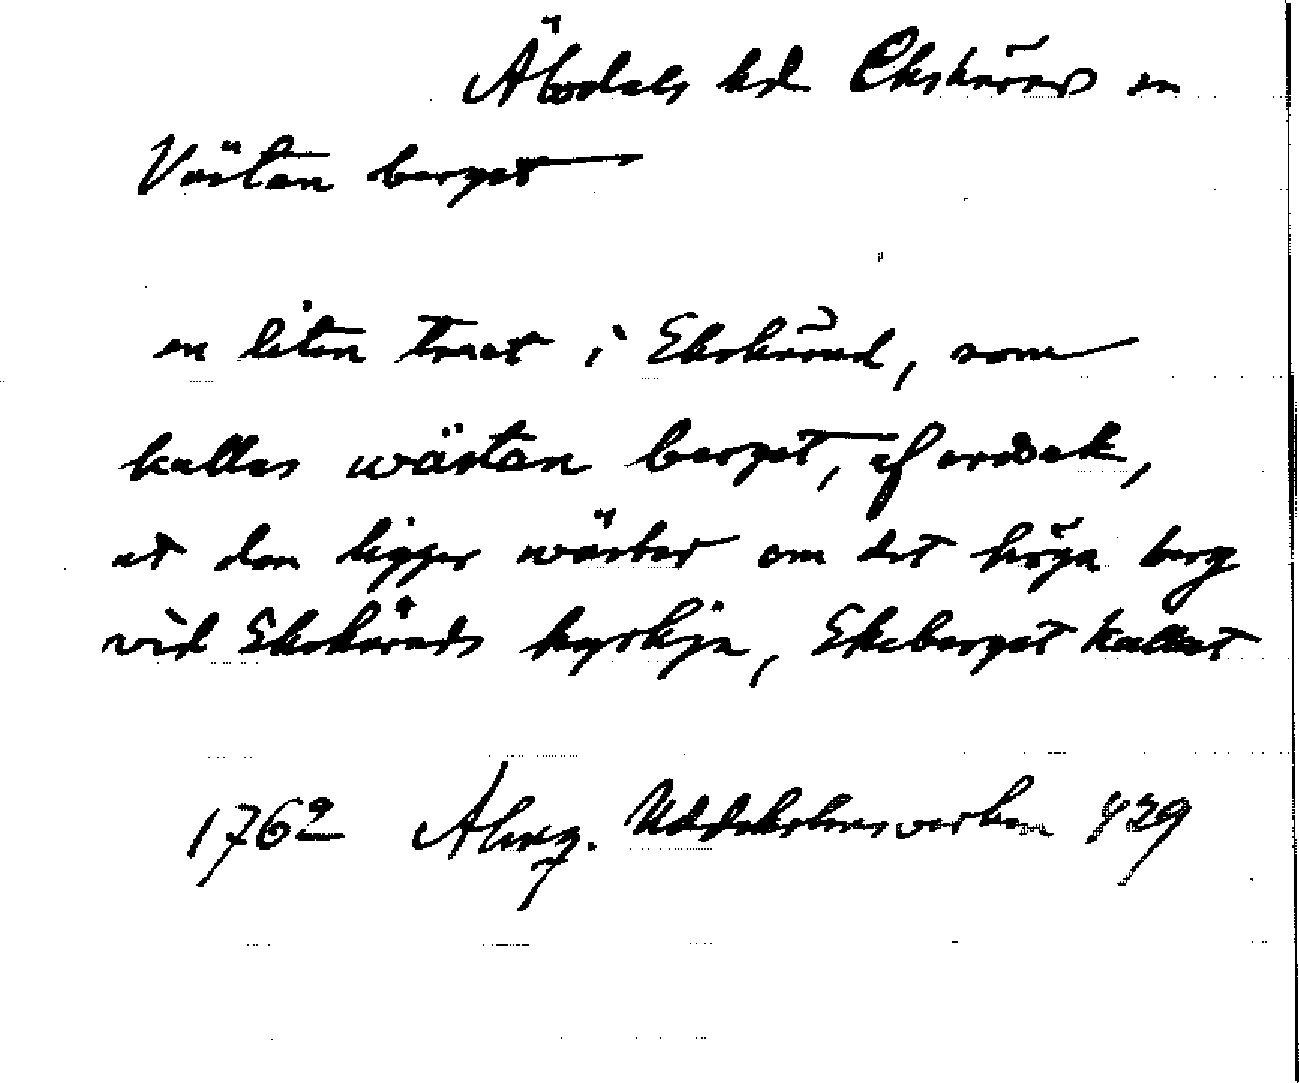 Älvdals hd Ekshärad sn
Västan berget
en liten tract i Ekshärad, som
kallas wästan berget, af orsak,
at den ligger wäster om det höga berg
vid Ekshärads kyrkja, Ekeberget kallat
1762 Almq. Uddeholmsverken 429